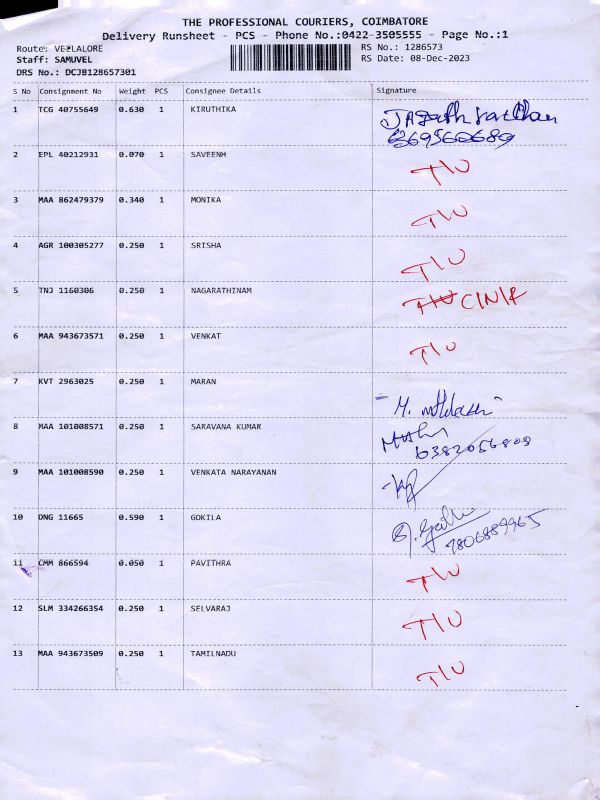 THE PROFESSIONAL COURIERS, COIMBATORE
Delivery Runsheet - PCS - Phone No.:0422-3505555 - Page No.:1
Route: VELLALORE RS No.: 1286573
Staff: SAMUVEL RS Date: 08-Dec-2023
DRS No.: DCJB128657301
S No Consignment No Weight PCS Consignee Details Signature
1 TCG 40755649 0.630 1 KIRUTHIKA
2 EPL 40212931 0.070 1 SAVEENH T/U
3 MAA 862479379 0.340 1 MONIKA T/U
4 AGR 100305277 0.250 1 SRISHA T/U
5 TNJ 1160306 0.250 1 NAGARATHINAM T/U C/N/R
6 MAA 943673571 0.250 1 VENKAT T/U
7 KVT 2963025 0.250 1 MARAN
8 MAA 101008571 0.250 1 SARAVANA KUMAR
6382056808
9 MAA 101008590 0.250 1 VENKATA NARAYANAN
10 ONG 11665 0.590 1 GOKILA
7806889965
11 CMM 866594 0.050 1 PAVITHRA T/U
12 SLM 334266354 0.250 1 SELVARAJ T/U
13 MAA 943673509 0.250 1 TAMILNADU T/U